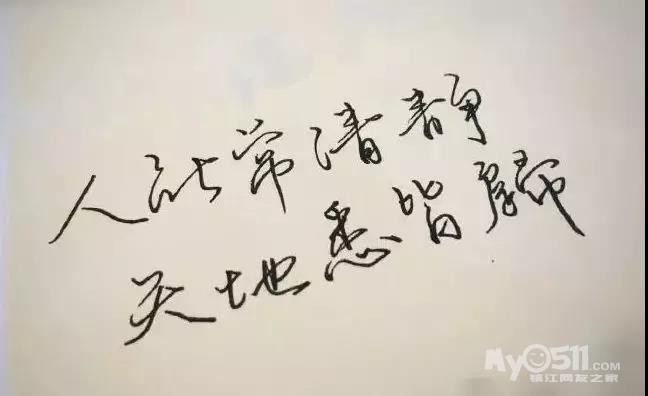 人能常清静
天地悉皆歸
My0511.com
镇江网友之家